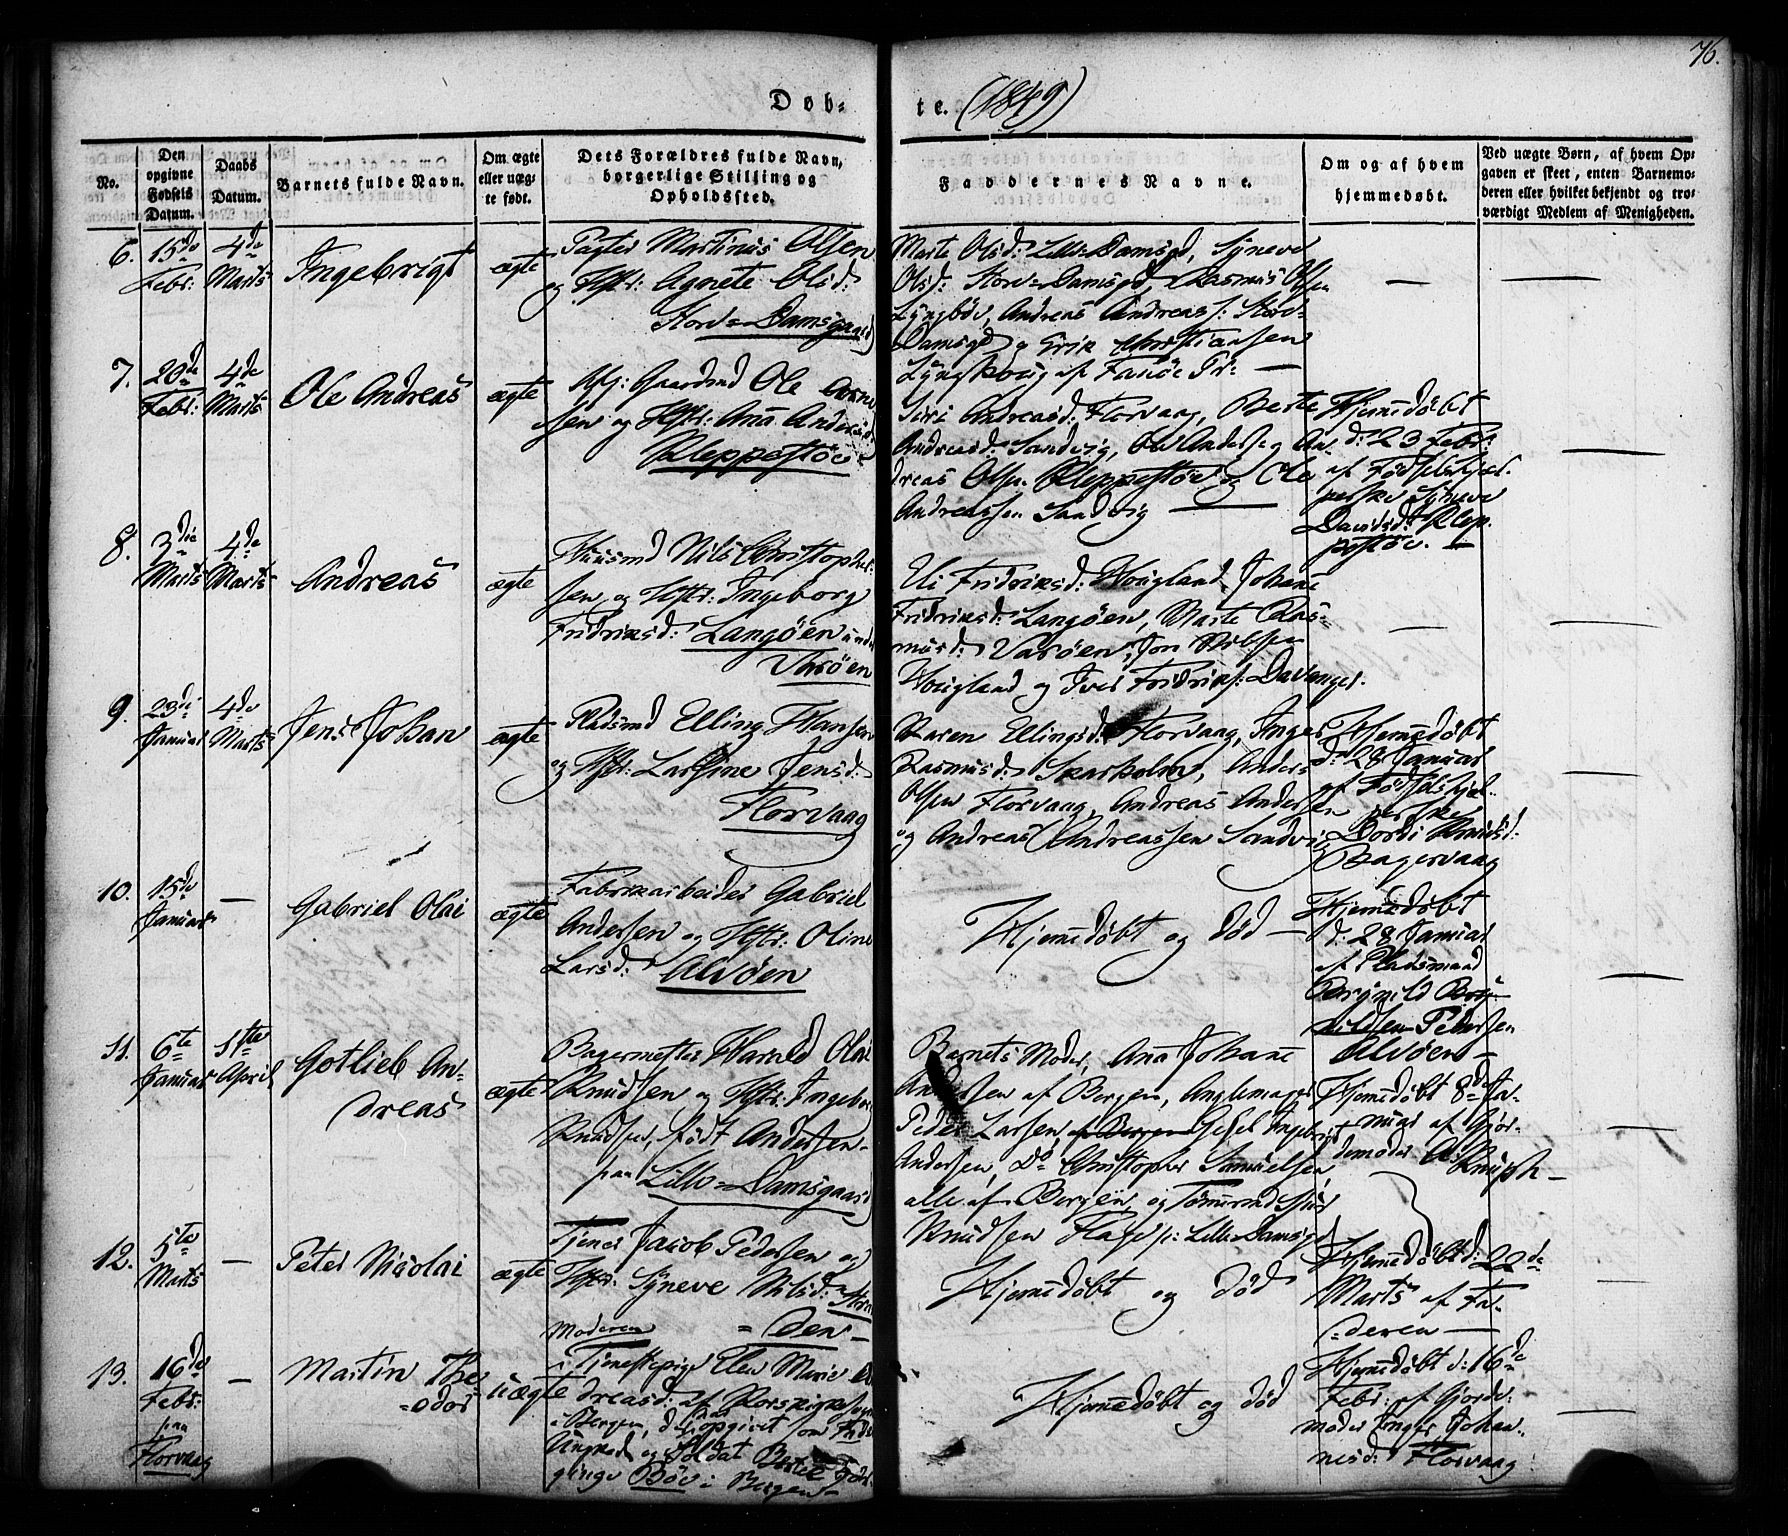 76.
Døb-
te. (1849)
No.
Den opgivne Fødsels Datum.
Daabs Datum.
Barnets fulde Navn.
Om ægte eller uægte født.
Dets Forældres fulde Navn, borgerlige Stilling og Opholdssted.
Faddernes Navne.
Om og af hvem hjemmedøbt.
Ved uægte Børn, af hvem Opgaven er skeet, enten Barnemoderen eller hvilket bekjendt og troværdigt Medlem af Menigheden.
6.
15de
Febr:
4de
Marts
Ingebrigt
ægte
Pagter Martinus Olsen
og Hstr: Agnete Olsd:
Store-Damsgaard
Marte Olsd: Lille-Damsgd, Syneve
Olsd: Store-Damsgd, Rasmus Olsen
Lyngbøe, Andreas Andreas: Store-
Damsgd og Erik Christiansen
af Fanøe Pr: —
—
—
7.
20de
Febr:
4de
Marts
Ole Andreas
ægte
Gaardmd Ole
sen og Hstr: Ana
Kleppestøe
Siri Andreasd: Florvaag, Berte
Andreasd: Sandvig, Ole Anders: og An-
dreas Olsen Kleppestøe og Ole
Andreassen Sandvig —
Hjemedøbt
d: 23 Febr:
af Fødselshjæl-
perske Syneve
Davidsd: Klep-
pestøe. —
—
8.
3die
Marts
4de
Marts
Andreas
ægte
Huusmd Nils Christopher-
sen og Hstr: Ingeborg
Fridriksd: Langøen under
Askøen
Eli Fridriksd: Hougland, Johane
Fridriksd: Langøen, Marte Ras-
musd: Jon Nilsen
Hougland og Iver Fridriks: Davanger.
—
—
9.
23di
Januar
4de
Marts
Jens Johan
ægte
Pladsmd Elling Hansen
og Hstr: Larsine Jensd:
Florvaag
Karen Ellingsd: Florvaag, Inger
Rasmusd: Skarholm, Anders
Olsen Florvaag, Andreas Andersen
og Andreas Andreassen Sandvig
Hjemedøbt
d: 28 Januar
af Fødselshjæl-
perske
Dordi Knudsd:
Bagervaag
—
10.
15de
Januar
—
Gabriel Olai
ægte
Fabrikarbeider Gabriel
Andersen og Hstr: Oline
Larsd: Alvøen
Hjemedøbt og død —
Hjemedøbt
d: 28 Januar
af Pladsmand
Brynild
Pedersen
Alvøen —
—
11.
6te
Januar
1ste
April
Gotlieb An-
dreas
ægte
Bagermester Harald Olai
Knudsen og Hstr: Ingeborg
Knudsen, født Andersen
paa Lille-Damsgaard
Barnets Moder, Ana Johane
Andersen af Bergen,
Peder Larsen,
Andersen, Do Christopher Samuelsen
alle af Bergen, og Sjur
Knudsen Lille Damsgd
Hjemedøbt 8de Ja-
nuar af Gjor-
demoder
—
12.
5te
Marts
—
Peter Nicolai
ægte
Tjener Jacob Pedersen og
Hstr: Syneve Nilsd:
Hjemedøbt og død
Hjemedøbt d: 22de
Marts af Fa-
deren —
—
13.
16de
Febr:
paa
Florvaag
—
Martin The-
odor
uægte
Moderen
Tjenestepige Elen Marie An-
dreasd: af Korskirkesogn
i Bergen, opgivet som Fader
Ungkarl og Soldat
Bøe i Bergen —
Hjemedøbt og død
Hjemedøbt d: 16de
Febr: af Gjorde-
moder Inger Johan-
nesd: Florvaag
—